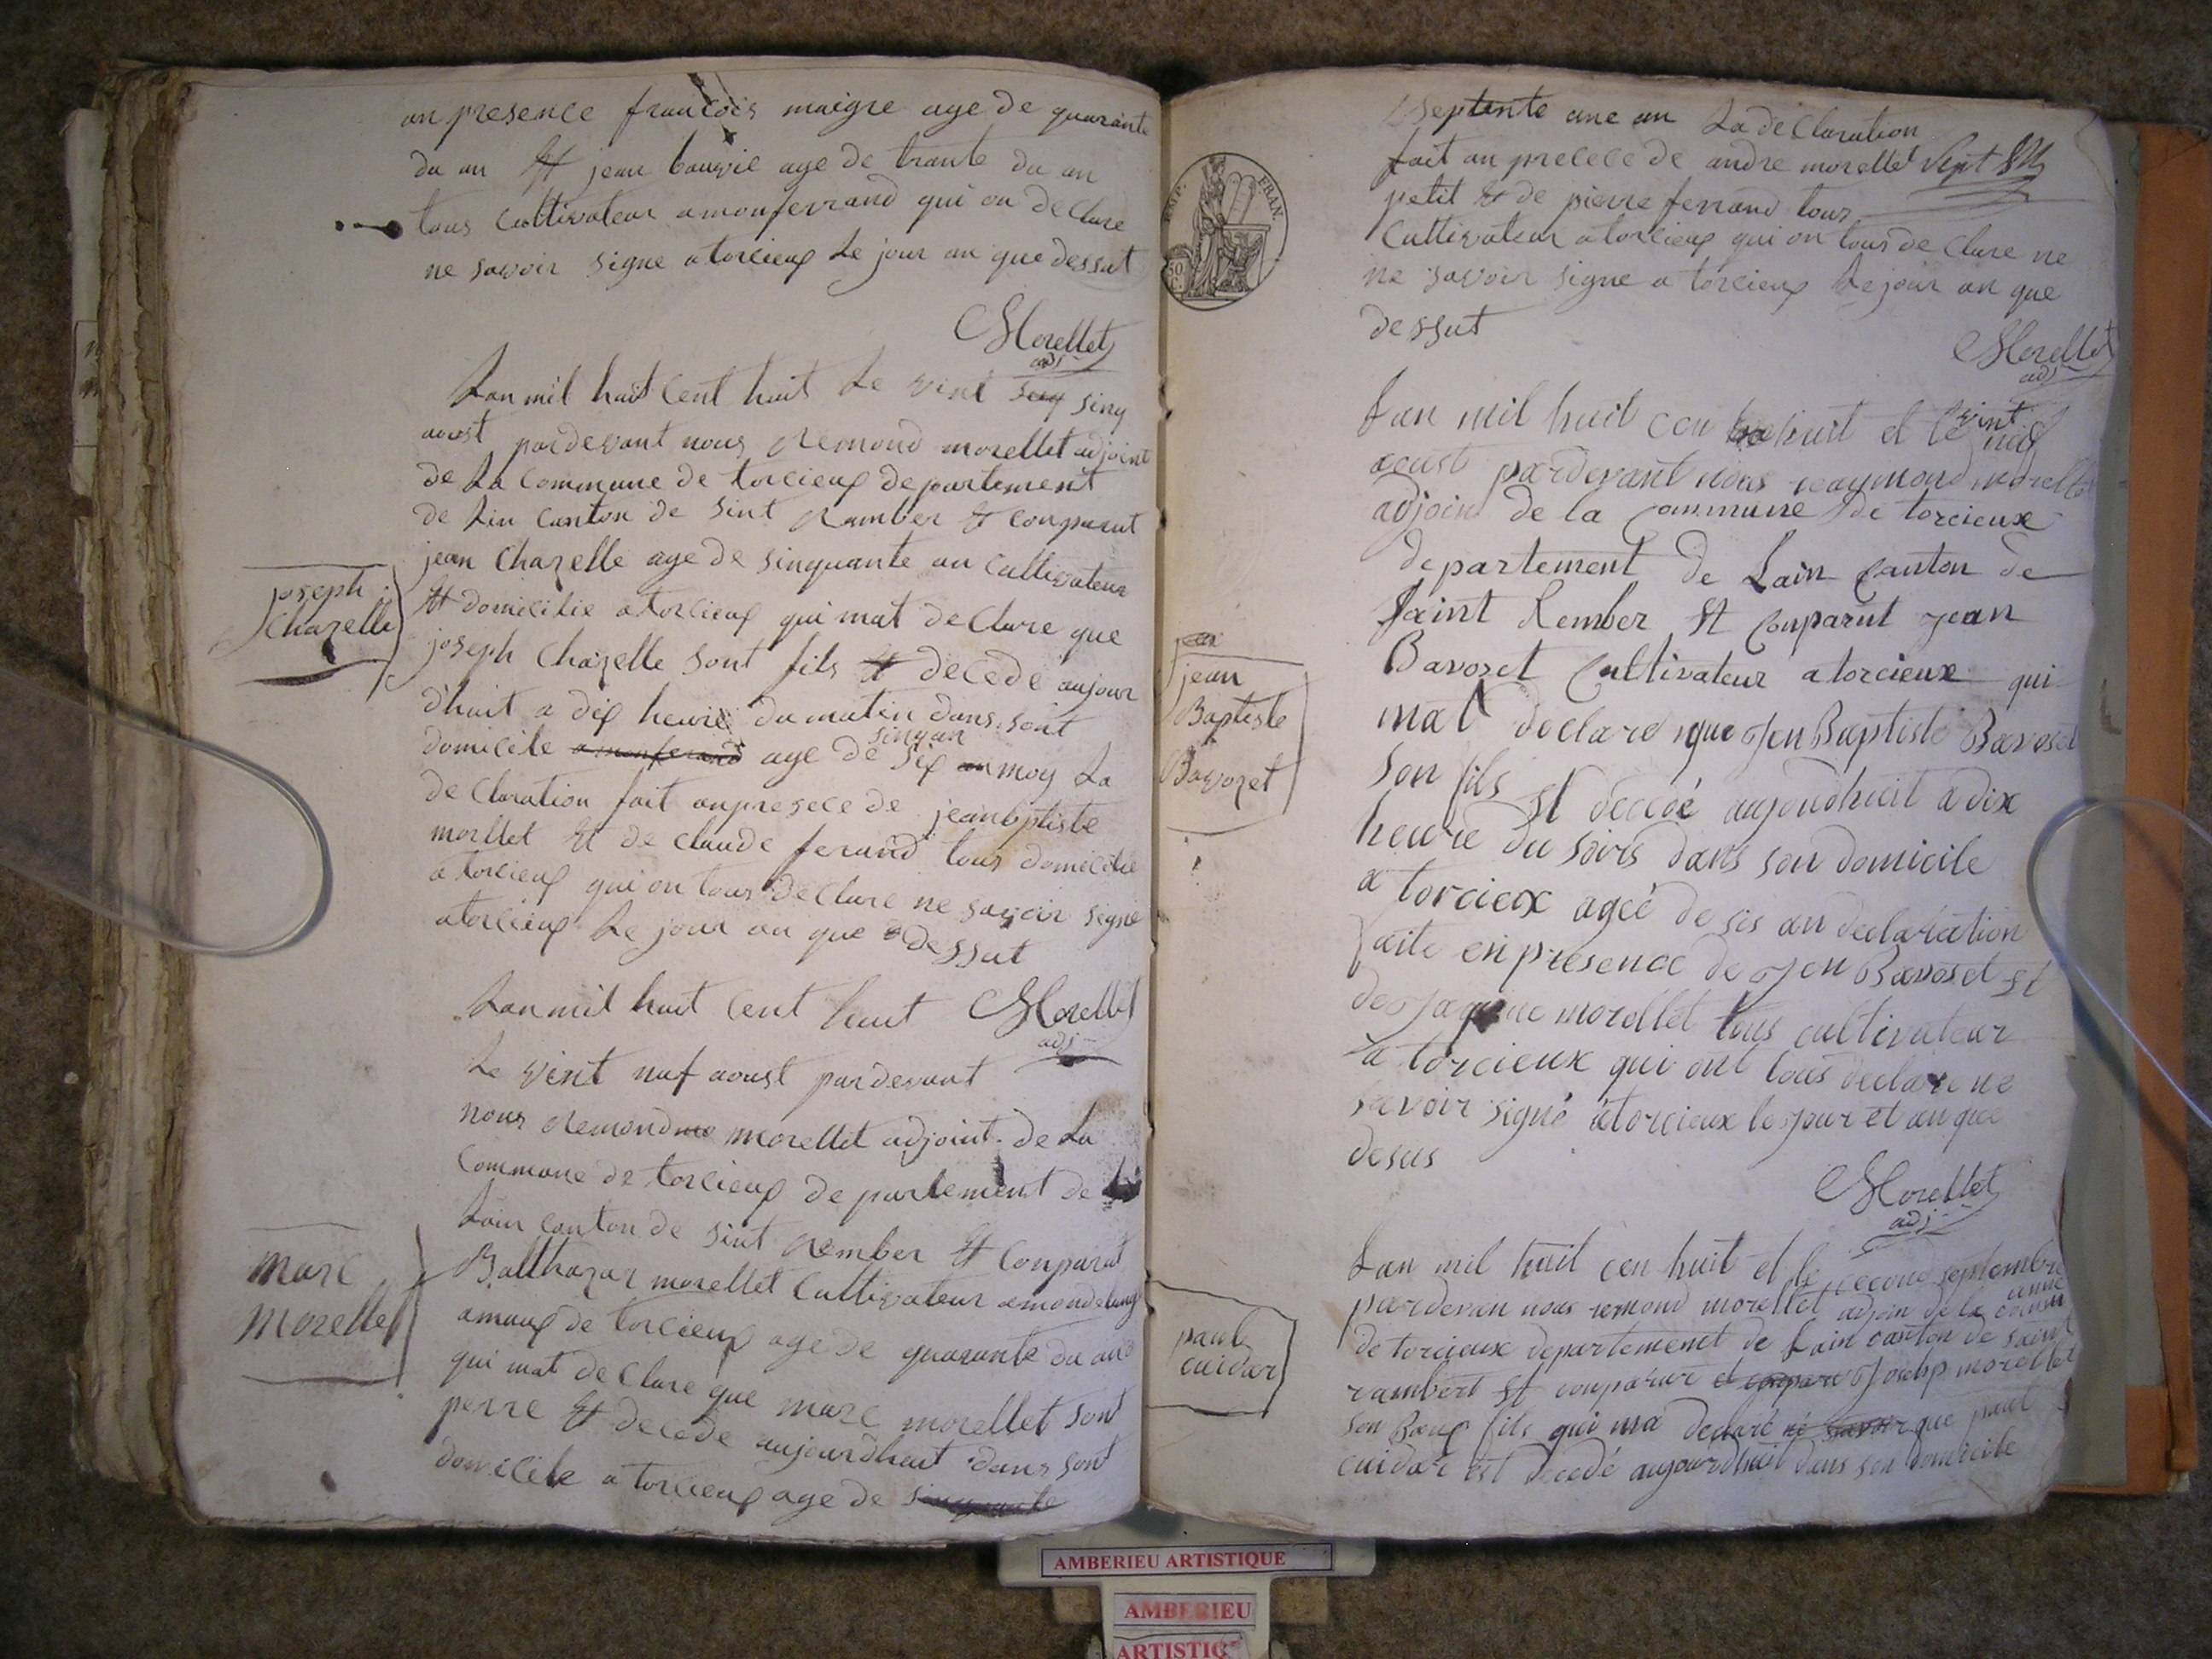 an presence francois maigre age de quarante
du an Et jean bouvie age de trante du an
tous Cultivateur amonferrand qui on declare
ne savoir signe a torcieux Le jour an que dessut
Morellet
adj
Lan mil huit Cent huit Le vint sinq
aoust pardevant nous Remond morellet adjoint
de La Commune de torcieux departement
de Lin Canton de sint Ramber Et Conparut
jean Chazelle age de sinquante an Cultivateur
Et domicilie a torcieux qui mat declare que
joseph Chazelle sont fils Et decede aujour
dhuit a dix heure du matin dans sont
domicile a monferand age de sinq an six an moy La
declaration fait anpresece de jeanbptiste
morllet Et de Claude ferand tous domicilie
a torcieux qui on tous declare ne savoir signe
atorcieux Le jour an que dessut
joseph
Chazelle
Lan mil huit Cent huit
Morellet
adj
Le vint nuf aoust pardevant
nous Remond morellet adjoint de La
Commune de torcieux departement de
Lain Canton de sint Rember Et Conparut
Balthazar morellet Cultivateur
amaux de torcieux age de quarante du an
qui mat declare que marc morellet sont
perre Et decede aujourdhuit dans sont
domicile a torcieux age de sinquante
marc
Morellet
septente une an La declaration
fait an precece de andre morellet
petit Et de pierre ferrand tous
Cultivateur a torcieux qui on tous declare ne
ne savoir signe a torcieux Le jour an que
dessut
Morellet
adj
REP. FRAN.
50
C.
Lan mil huit cen huit et le vint neuf
aoust pardevant nous reaymond morellet
adjoin de la Commune de torcieux
departement de Lain Canton de
Saint Rember Et Conparut Jean
Bavozet Cultivateur a torcieux qui
mat declare que Jen Baptiste Bavoset
son fils Et decédé aujourdhuit a dix
heure du soirs dans son domicile
a torcieux ageé de sis an declaration
faite en presence de Jen Bavoset et
de Jaqune morellet tous cultivateur
a torcieux qui ont tous declare ne
savoir signé a torcieux le jour et an que
desus
Morellet
adj
jean
Baptiste
Bavozet
Lan mil huit cen huit et le second septembre
pardevan nous remond morellet adjoin de la comm unne
de torcieux departement de Lain canton de saint
rambert Et conparut et conparu Josehp morellet
son Baux fils qui ma declaré ne savoir que paul
cuidar est decedé aujourdhuit dans son domicile
paul
cuidar
AMBERIEU ARTISTIQUE
AMBERIEU
ARTISTIQ